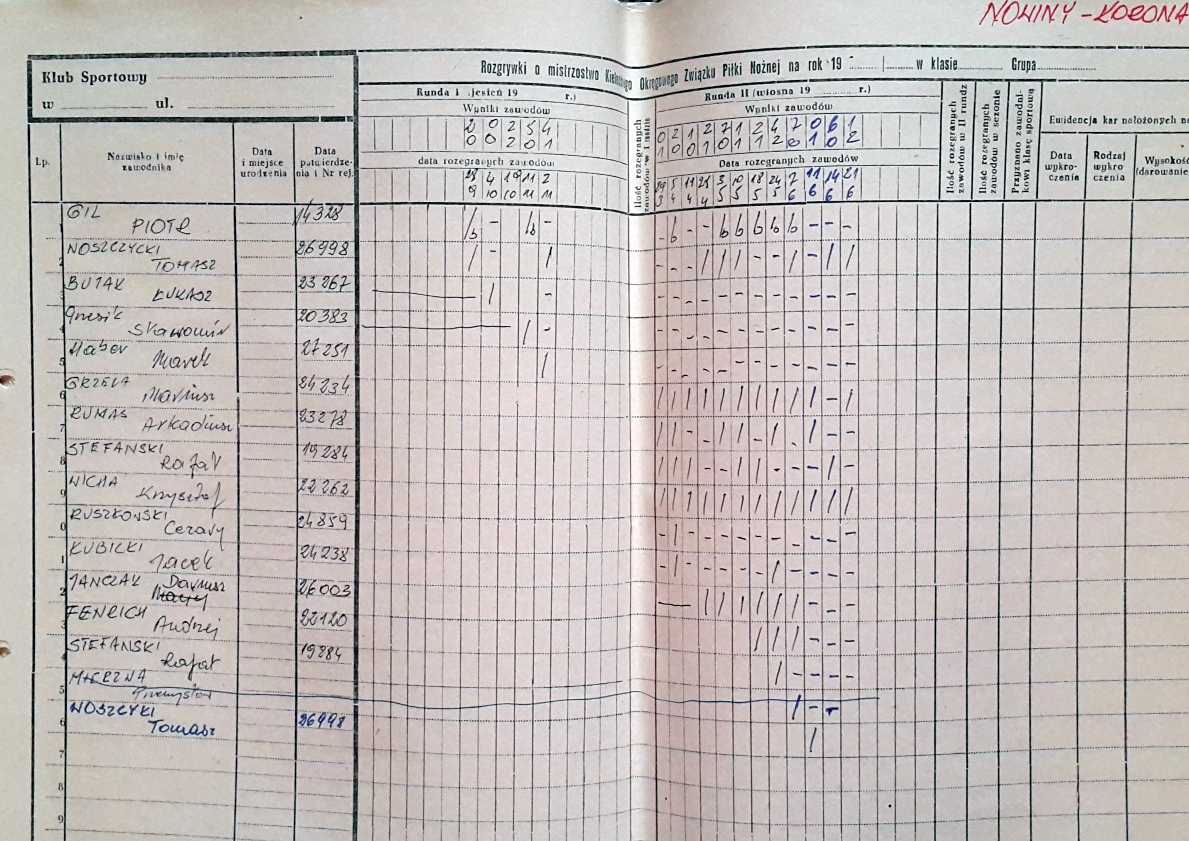 NOWINY - KORONA
Klub Sportowy
w ul.
Rozgrywki o mistrzostwo Kieleckiego Okręgowego Związku Piłki Nożnej na rok 19 w klasie Grupa
Runda I jesień 19 r.)
Wyniki zawodów
2 0 2 5 4
0 0 2 0 1
data rozegranych zawodów
28 4 19 11 2
9 10 10 11 11
Ilość rozegranych zawodów w I rundzie
Runda II /wiosna 19 r.)
Wyniki zawodów
0 2 1 2 7 1 2 4 7 0 6 1
1 0 0 1 0 1 1 2 0 1 0 2
Data rozegranych zawodów
29 5 11 25 3 10 18 24 7 11 14 21
3 4 4 4 5 5 5 5 6 6 6 6
Ilość rozegranych zawodów w II rundz
Ilość rozegranych zawodów w sezonie
Przyznano zawodnikowi klasę sportową
Ewidencja kar nałożonych na
Data wykroczenia
Rodzaj wykroczenia
Wysokość (darowanie
Lp.
Nazwisko i imię zawodnika
Data i miejsce urodzenia
Data potwierdzenia i Nr rej.
1 GIL PIOTR 14328
2 NOSZCZYCKI TOMASZ 26998
3 BUJAK ŁUKASZ 23267
4 Gresik Sławomir 20383
5 Haber Marek 27251
6 GRZELA Mariusz 24234
7 RUMAS Arkadiusz 23278
8 STEFAŃSKI Rafał 19284
9 WICHA Krzysztof 22262
0 RUSZKOWSKI Cezary 24859
1 KUBICKI Jacek 24238
2 JANCZAK Dariusz 26003
3 FENRICH Andrzej 22120
4 STEFAŃSKI Rafał 19284
5 MIERZWA Przemysław
6 NOSZCYKI Tomasz 26998
7
8
9